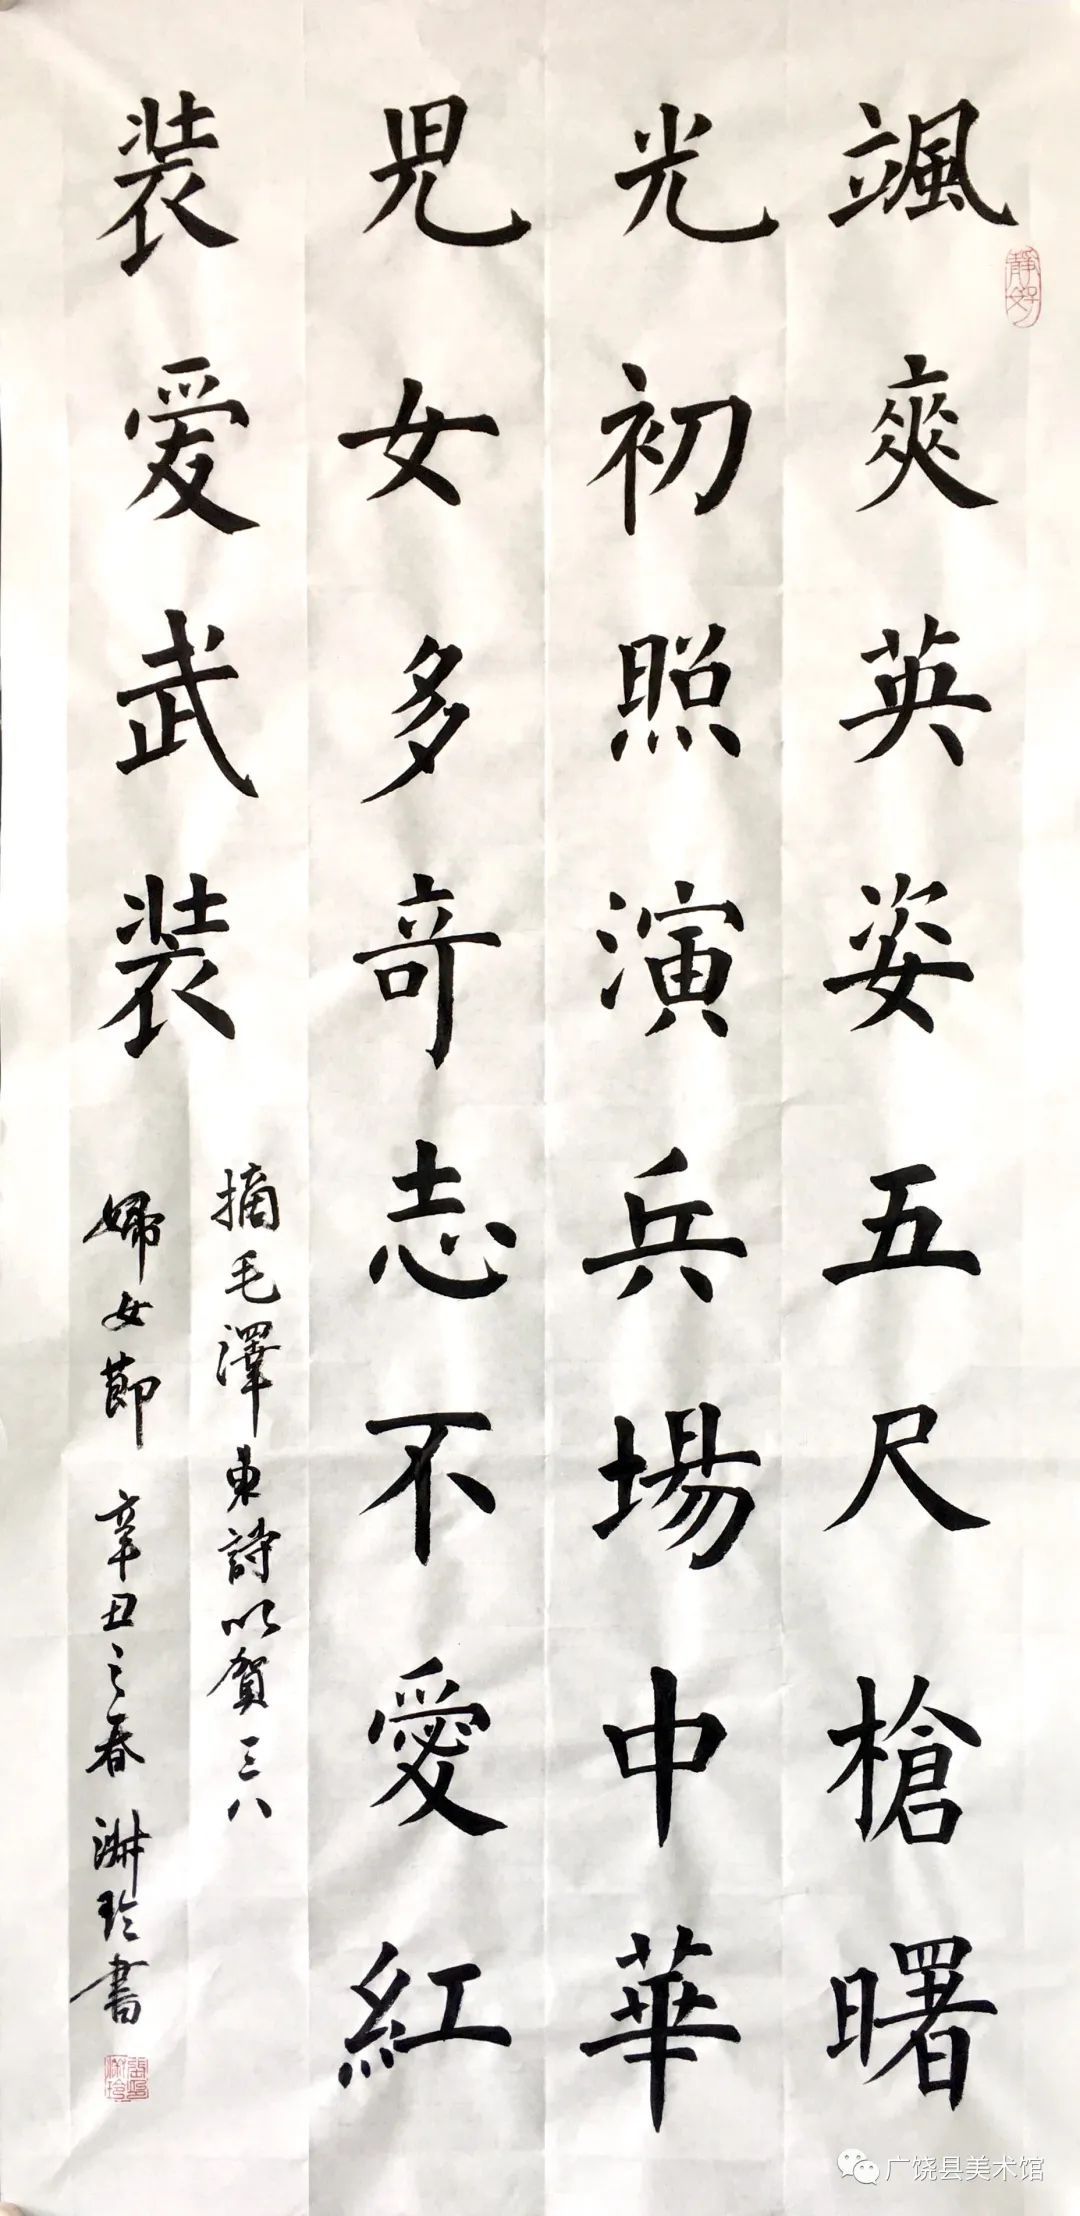 颯爽英姿五尺槍曙
光初照演兵場中華
児女多奇志不愛紅
装爱武装
摘毛澤東詩以賀三八
婦女節 辛丑之春 淋玲書
靜好
广饶县美术馆